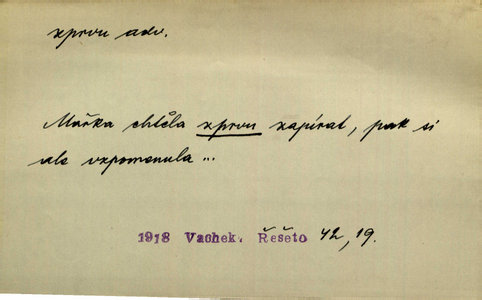 zprvu adv.
Mařka chtěla zprvu zapírat, pak si
ale vzpomenula...
1918 Vachek, Řešeto 42, 19.